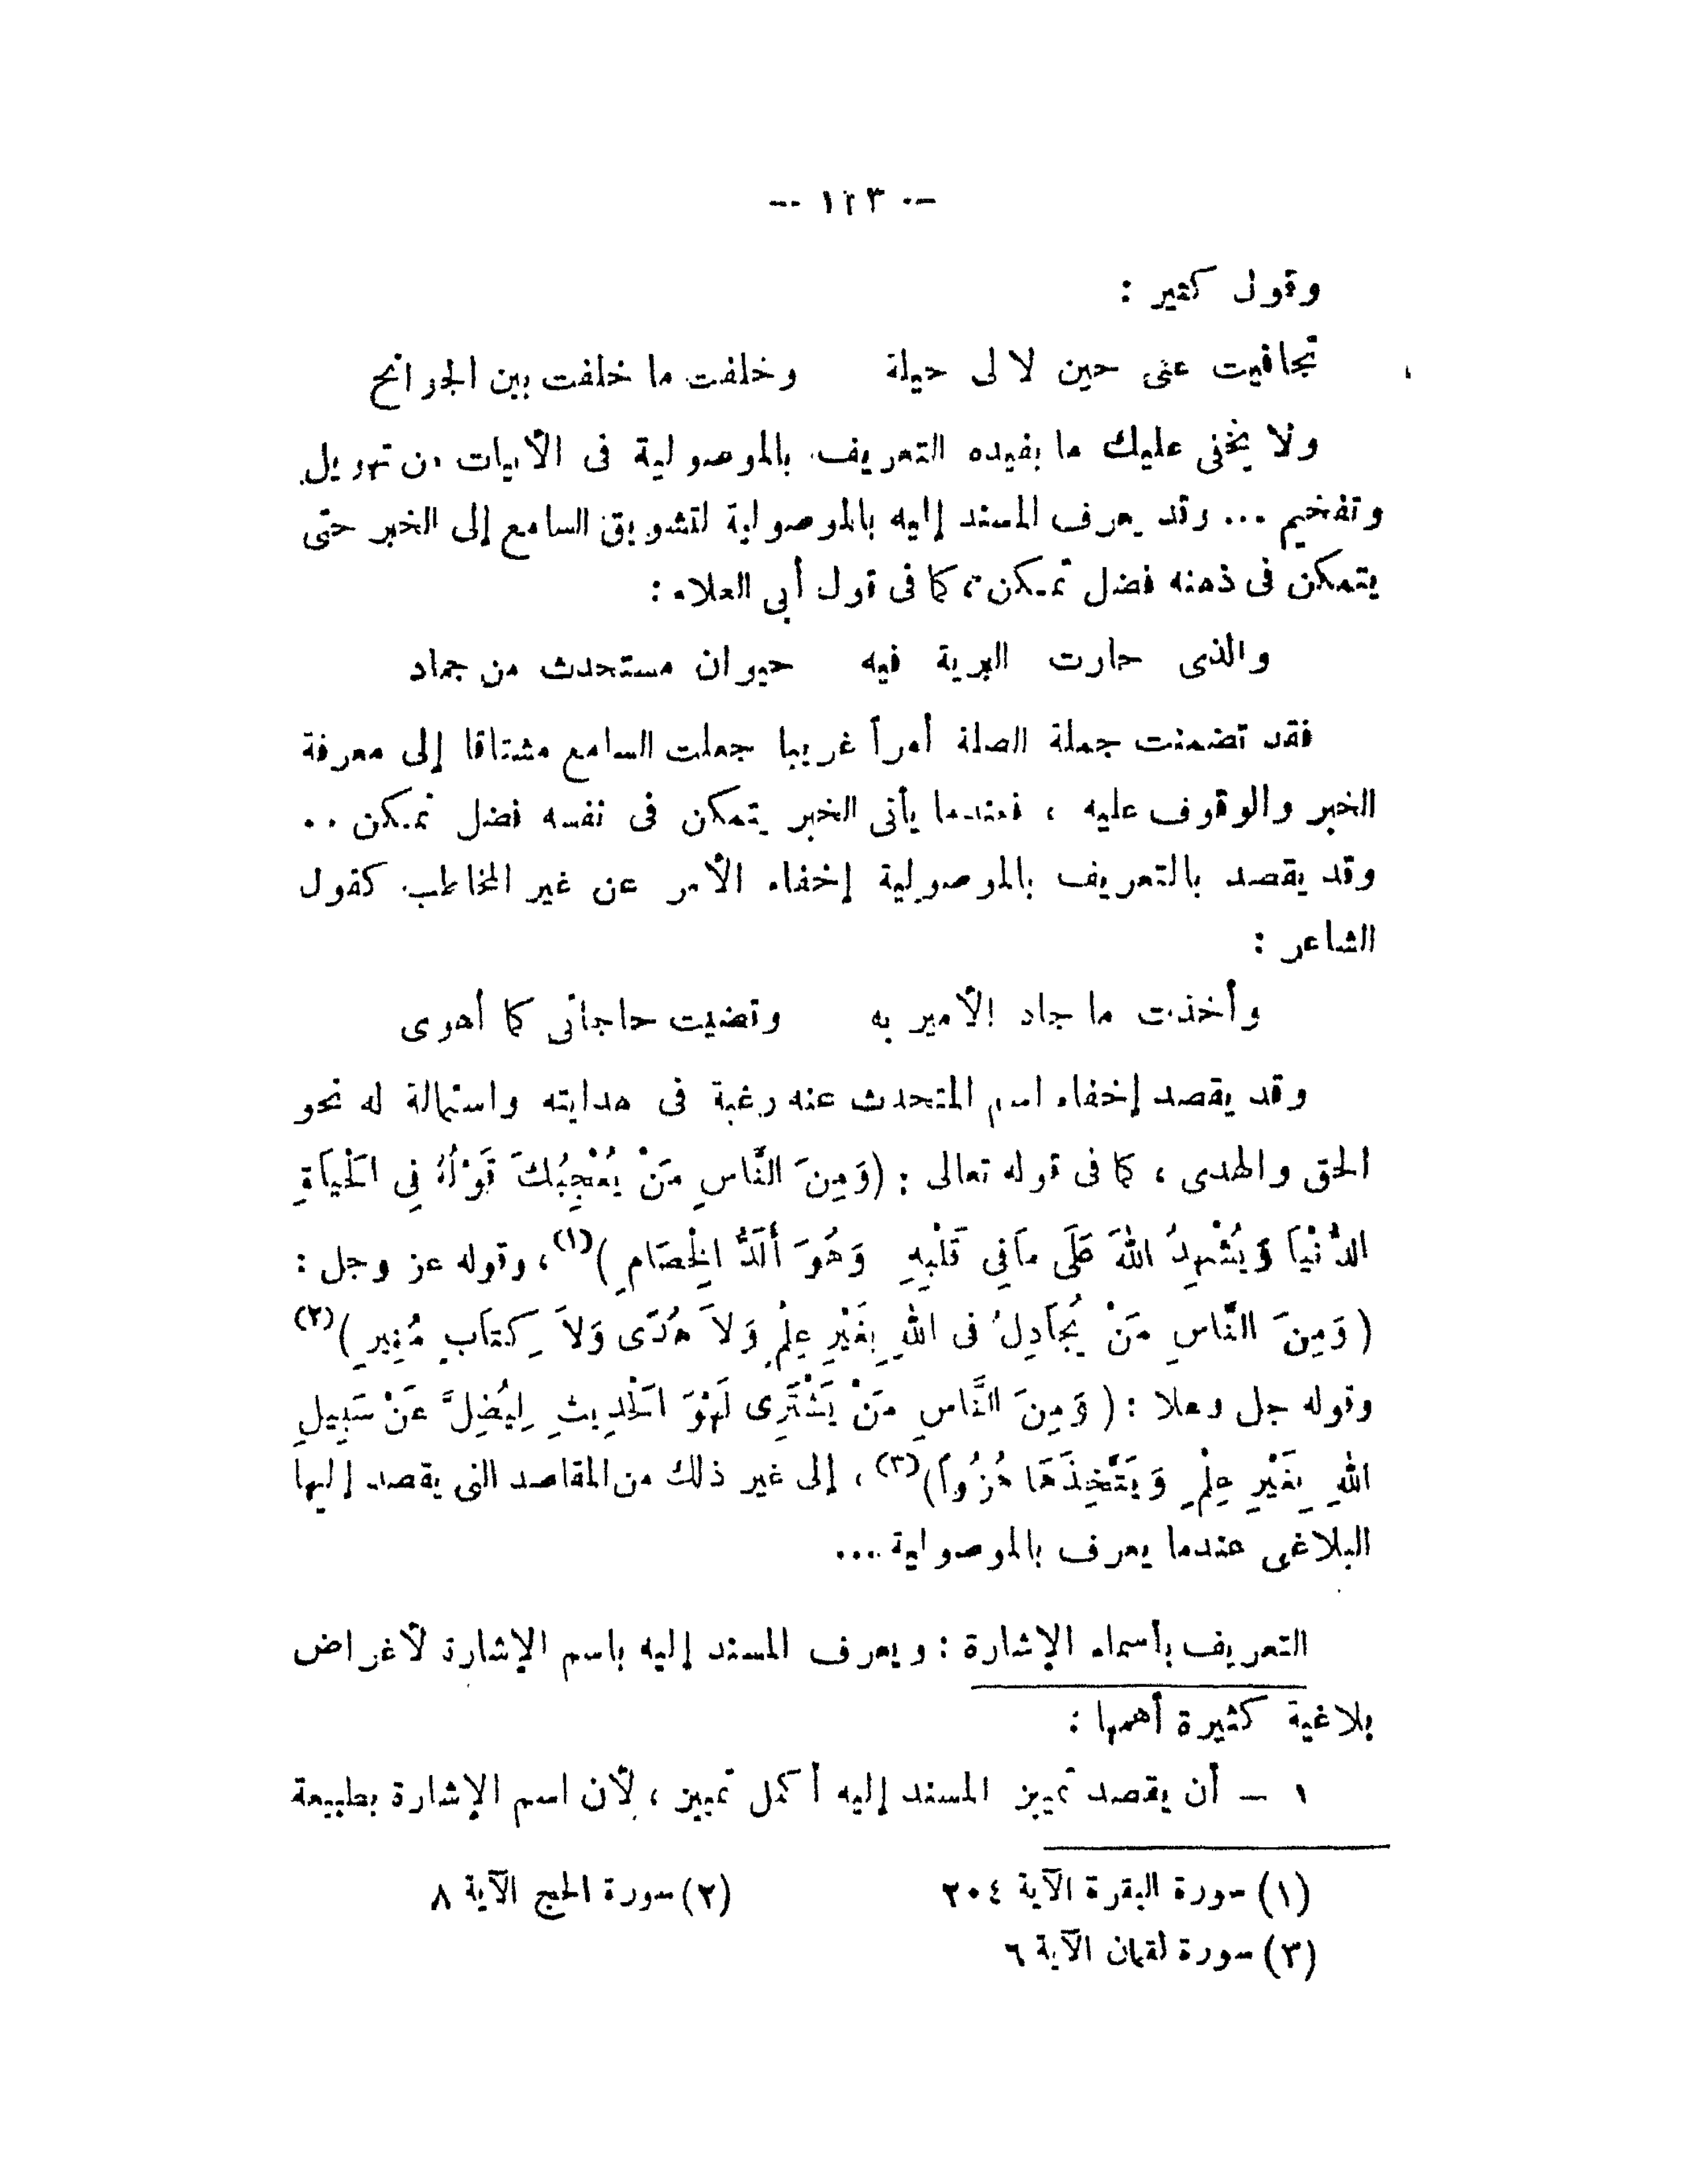 — ١٢٣ —
وقول كثير :
تجافيت عنى حين لا لى حيلة وخلفت ما خلفت بين الجوانح
ولا يخفى عليك ما يفيده التعريف بالموصولية فى الأبيات من تهويل
وتفخيم ... وقد يعرف المسند إليه بالموصولية لتشويق السامع إلى الخبر حتى
يتمكن فى ذهنه فضل تمكن ، كما فى قول أبى العلاء :
والذى حارت البرية فيه حيوان مستحدث من جماد
فقد تضمنت جملة الصلة أمراً غريبا جعلت السامع مشتاقا إلى معرفة
الخبر والوقوف عليه ، فعندما يأتى الخبر يتمكن فى نفسه فضل تمكن ..
وقد يقصد بالتعريف بالموصولية إخفاء الأمر عن غير المخاطب كقول
الشاعر :
وأخذت ما جاد الأمير به وقضيت حاجاتى كما أهوى
وقد يقصد إخفاء اسم المتحدث عنه رغبة فى هدايته واستمالة له نحو
الحق والهدى ، كما فى قوله تعالى : (وَمِنَ النَّاسِ مَنْ يُعْجِبُكَ قَوْلُهُ فِي الْحَيَاةِ
الدُّنْيَا وَيُشْهِدُ اللهَ عَلَى مَا فِي قَلْبِهِ وَهُوَ أَلَدُّ الْخِصَامِ )(١)، وقوله عز وجل :
( وَمِنَ النَّاسِ مَنْ يُجَادِلُ فى اللهِ بِغَيْرِ عِلْمٍ وَلاَ هُدًى وَلاَ كِتَابٍ مُنِيرٍ )(٢)
وقوله جل وعلا : ( وَمِنَ النَّاسِ مَنْ يَشْتَرِى لَهْوَ الْحَدِيثِ لِيُضِلَّ عَنْ سَبِيلِ
اللهِ بِغَيْرِ عِلْمٍ وَيَتَّخِذَهَا هُزُواً)(٣) ، إلى غير ذلك من المقاصد التى يقصد إليها
البلاغى عندما يعرف بالموصولية ...
التعريف بأسماء الإشارة : ويعرف المسند إليه باسم الإشارة لأغراض
بلاغية كثيرة أهمها :
١ — أن يقصد تمييز المسند إليه أكمل تمييز ، لأن اسم الإشارة بطبيعة
(١) سورة البقرة الآية ٢٠٤ (٢) سورة الحج الآية ٨
(٣) سورة لقمان الآية ٦